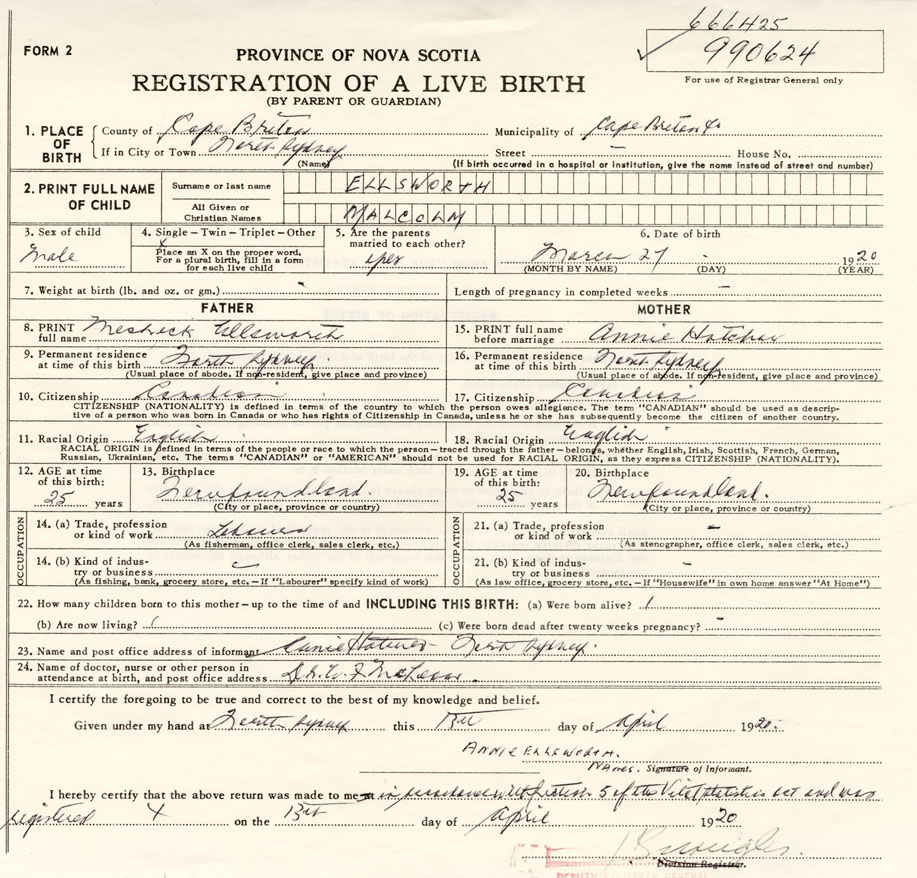 666425
FORM 2
990624
For use of Registrar General only
PROVINCE OF NOVA SCOTIA
REGISTRATION OF A LIVE BIRTH
(BY PARENT OR GUARDIAN)
1. PLACE OF BIRTH
County of Cape Breton Municipality of Cape Breton Co
If in City or Town North Sydney Street – House No.
(Name) (If birth occurred in a hospital or institution, give the name instead of street and number)
2. PRINT FULL NAME OF CHILD
Surname or last name ELLSWORTH
All Given or Christian Names MALCOLM
3. Sex of child 4. Single – Twin – Triplet – Other 5. Are the parents married to each other? 6. Date of birth
Male X Place an X on the proper word. For a plural birth, fill in a form for each live child yes March 27 1920
(MONTH BY NAME) (DAY) (YEAR)
7. Weight at birth (lb. and oz. or gm.) - Length of pregnancy in completed weeks –
FATHER MOTHER
8. PRINT full name Ellsworth 15. PRINT full name before marriage Annie Hatcher
9. Permanent residence at time of this birth North Sydney 16. Permanent residence at time of this birth North Sydney
(Usual place of abode. If non-resident, give place and province) (Usual place of abode. If non-resident, give place and province)
10. Citizenship Canadian 17. Citizenship Canadian
CITIZENSHIP (NATIONALITY) is defined in terms of the country to which the person owes allegiance. The term "CANADIAN" should be used as descrip-
tive of a person who was born in Canada or who has rights of Citizenship in Canada, unless he or she has subsequently become the citizen of another country.
11. Racial Origin English 18. Racial Origin English
RACIAL ORIGIN is defined in terms of the people or race to which the person – traced through the father – belongs, whether English, Irish, Scottish, French, German,
Russian, Ukrainian, etc. The terms "CANADIAN" or "AMERICAN" should not be used for RACIAL ORIGIN, as they express CITIZENSHIP (NATIONALITY).
12. AGE at time of this birth: 13. Birthplace 19. AGE at time of this birth: 20. Birthplace
25 years Newfoundland 25 years Newfoundland.
(City or place, province or country) (City or place, province or country)
OCCUPATION OCCUPATION
14. (a) Trade, profession or kind of work Labourer 21. (a) Trade, profession or kind of work –
(As fisherman, office clerk, sales clerk, etc.) (As stenographer, office clerk, sales clerk, etc.)
14. (b) Kind of indus-try or business – 21. (b) Kind of indus-try or business –
(As fishing, bank, grocery store, etc. – If "Labourer" specify kind of work) (As law office, grocery store, etc. – If "Housewife" in own home answer "At Home")
22. How many children born to this mother – up to the time of and INCLUDING THIS BIRTH: (a) Were born alive? 1
(b) Are now living? 1 (c) Were born dead after twenty weeks pregnancy? –
23. Name and post office address of informant Annie Hatcher - North Sydney.
24. Name of doctor, nurse or other person in
attendance at birth, and post office address Dr.
I certify the foregoing to be true and correct to the best of my knowledge and belief.
Given under my hand at North Sydney this day of April 1920.
ANNIE ELLSWORTH.
NAMES. Signature of Informant.
I hereby certify that the above return was made to me in Section 5 of the Vital Statistics act and was
registered on the day of April 1920
Division Registrar.
DEPUTY REGISTRAR GENERAL